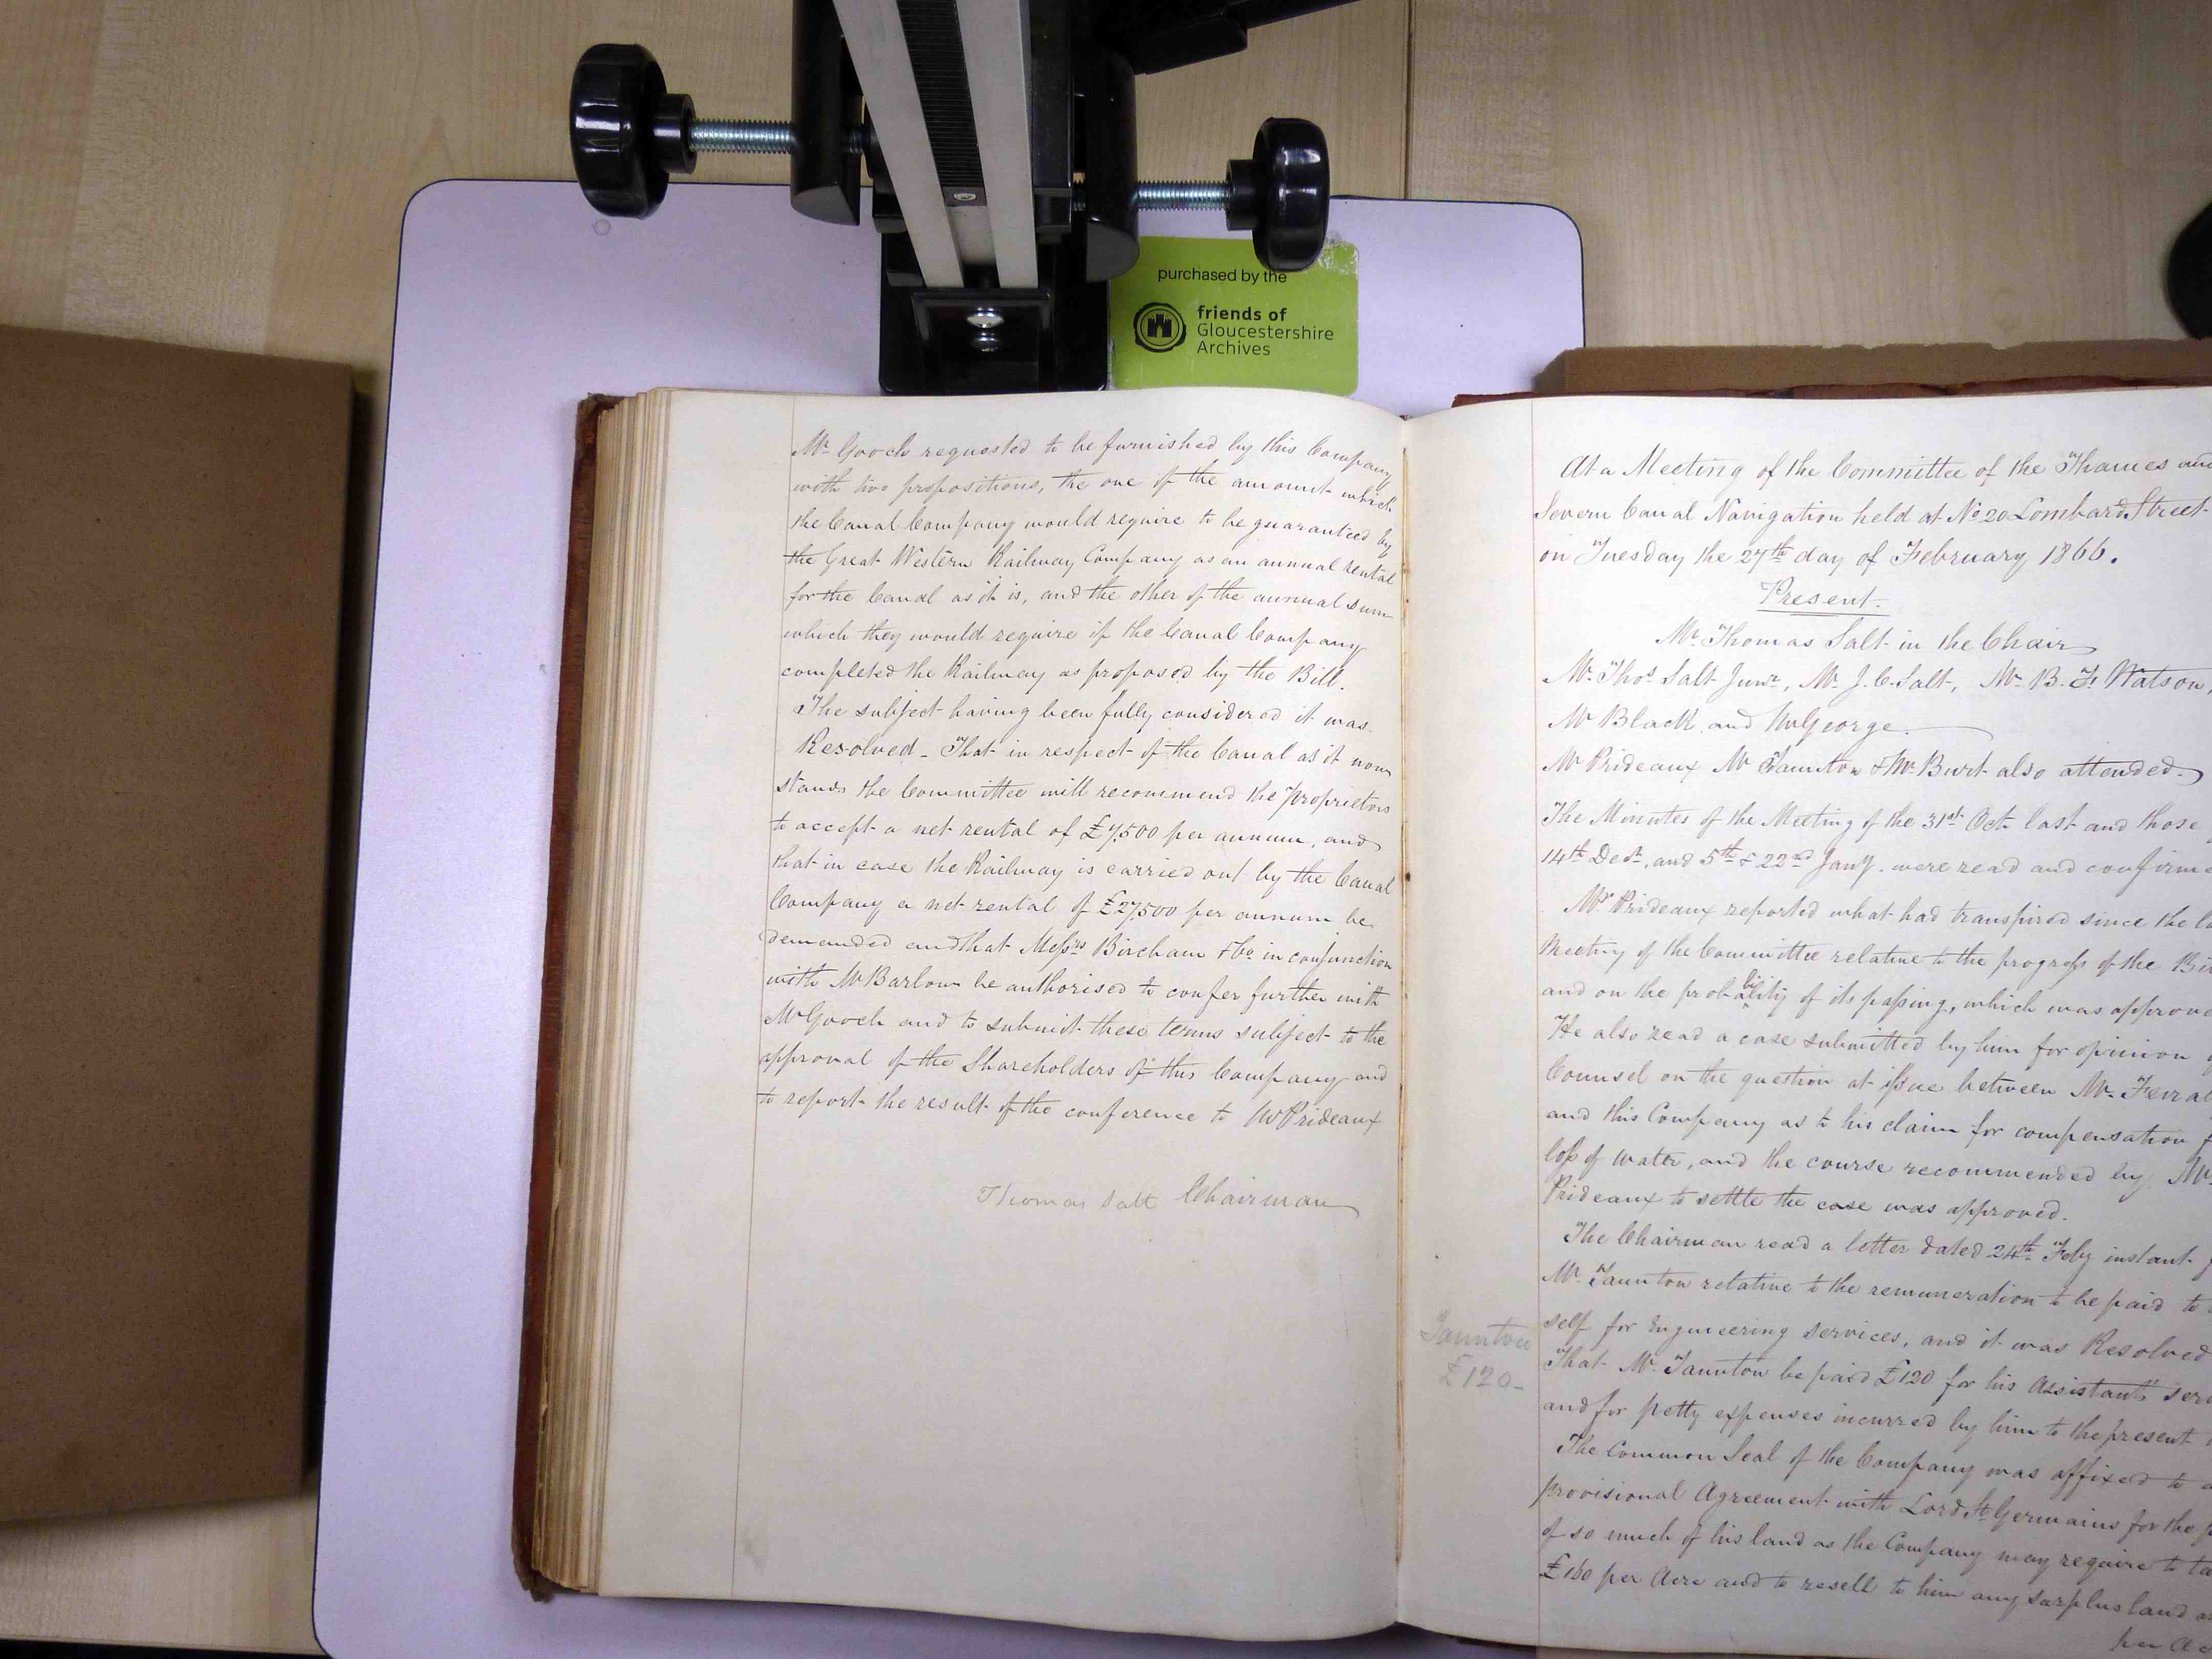 purchased by the
friends of
Gloucestershire
Archives
Mr. Gooch requested to be furnished by this Company
with two propositions, the one of the amount which
the Canal Company would require to be guaranteed by
the Great Western Railway Company as an annual rental
for the Canal as it is, and the other of the annual sum
which they would require if the Canal Company
completed the Railway as proposed by the Bill.
The subject having been fully considered it was
Resolved - That in respect of the Canal as it now
stands the Committee will recommend the Proprietors
to accept a net rental of £7,500 per annum, and
that in case the Railway is carried out by the Canal
Company a net rental of £27,500 per annum be
demanded and that Messrs Bircham & Co in conjunction
with Mr Barlow be authorised to confer further with
Mr Gooch and to submit these terms subject to the
approval of the Shareholders of this Company and
to report the result of the conference to Mr Prideaux
Thomas Salt Chairman
At a Meeting of the Committee of the Thames and
Severn Canal Navigation held at No 20 Lombard Street
on Tuesday the 27th day of February 1866.
Present.
Mr. Thomas Salt in the Chair
Mr. Thos Salt Junr, Mr. J. C. Salt, Mr. B. F. Watson,
Mr Black and Mr George.
Mr Prideaux Mr Taunton & Mr Burt also attended.
The Minutes of the Meeting of the 31st Oct last and those
14th Decr, and 5th & 22nd Jany. were read and
Mr Prideaux reported what had transpired since the
Meeting of the Committee relative to the progress of the
and on the probability of its passing, which was
He also read a case submitted by him for opinion
Counsel on the question at issue between Mr.
and this Company as to his claim for compensation
loss of water, and the course recommended by Mr.
Prideaux to settle the case was approved.
The Chairman read a letter dated 24th Feby instant
Mr. Taunton relative to the remuneration to be paid to
self for Engineering services, and it was Resolved
Taunton
£120-
That Mr. Taunton be paid £120 for his Assistant's
and for petty expenses incurred by him to the present
The Common Seal of the Company was affixed to a
provisional Agreement with Lord St Germains for the
of so much of his land as the Company may require to
per Acre and to resell to him any surplus land
per